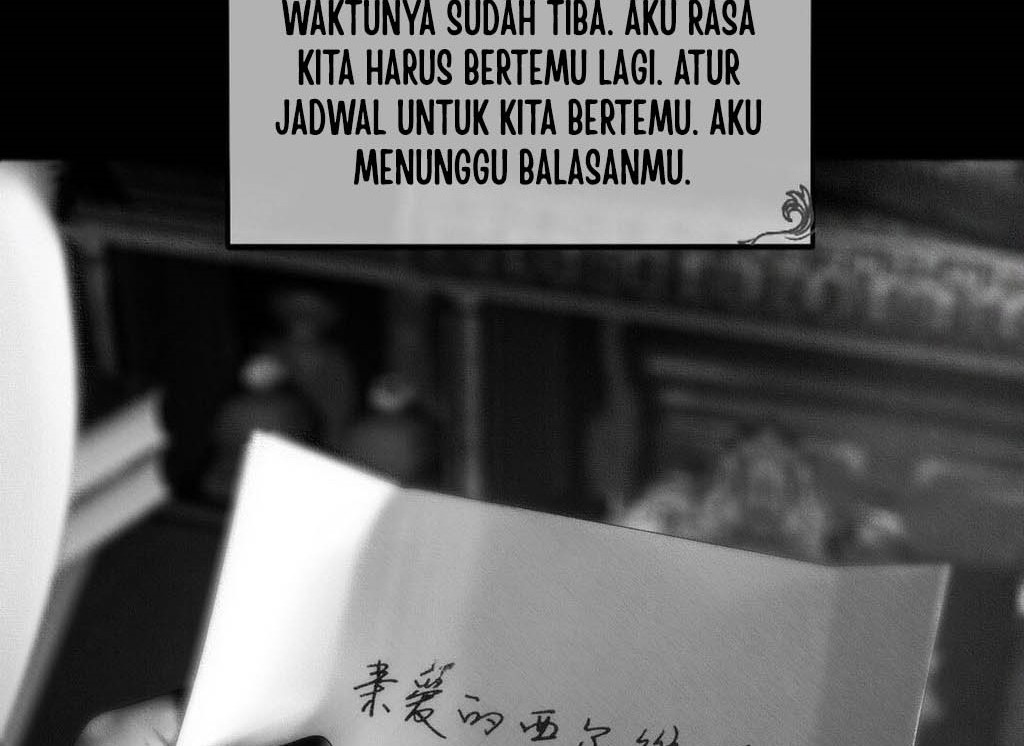 WAKTUNYA SUDAH TIBA. AKU RASA
KITA HARUS BERTEMU LAGI. ATUR
JADWAL UNTUK KITA BERTEMU. AKU
MENUNGGU BALASANMU.
爱的西尔